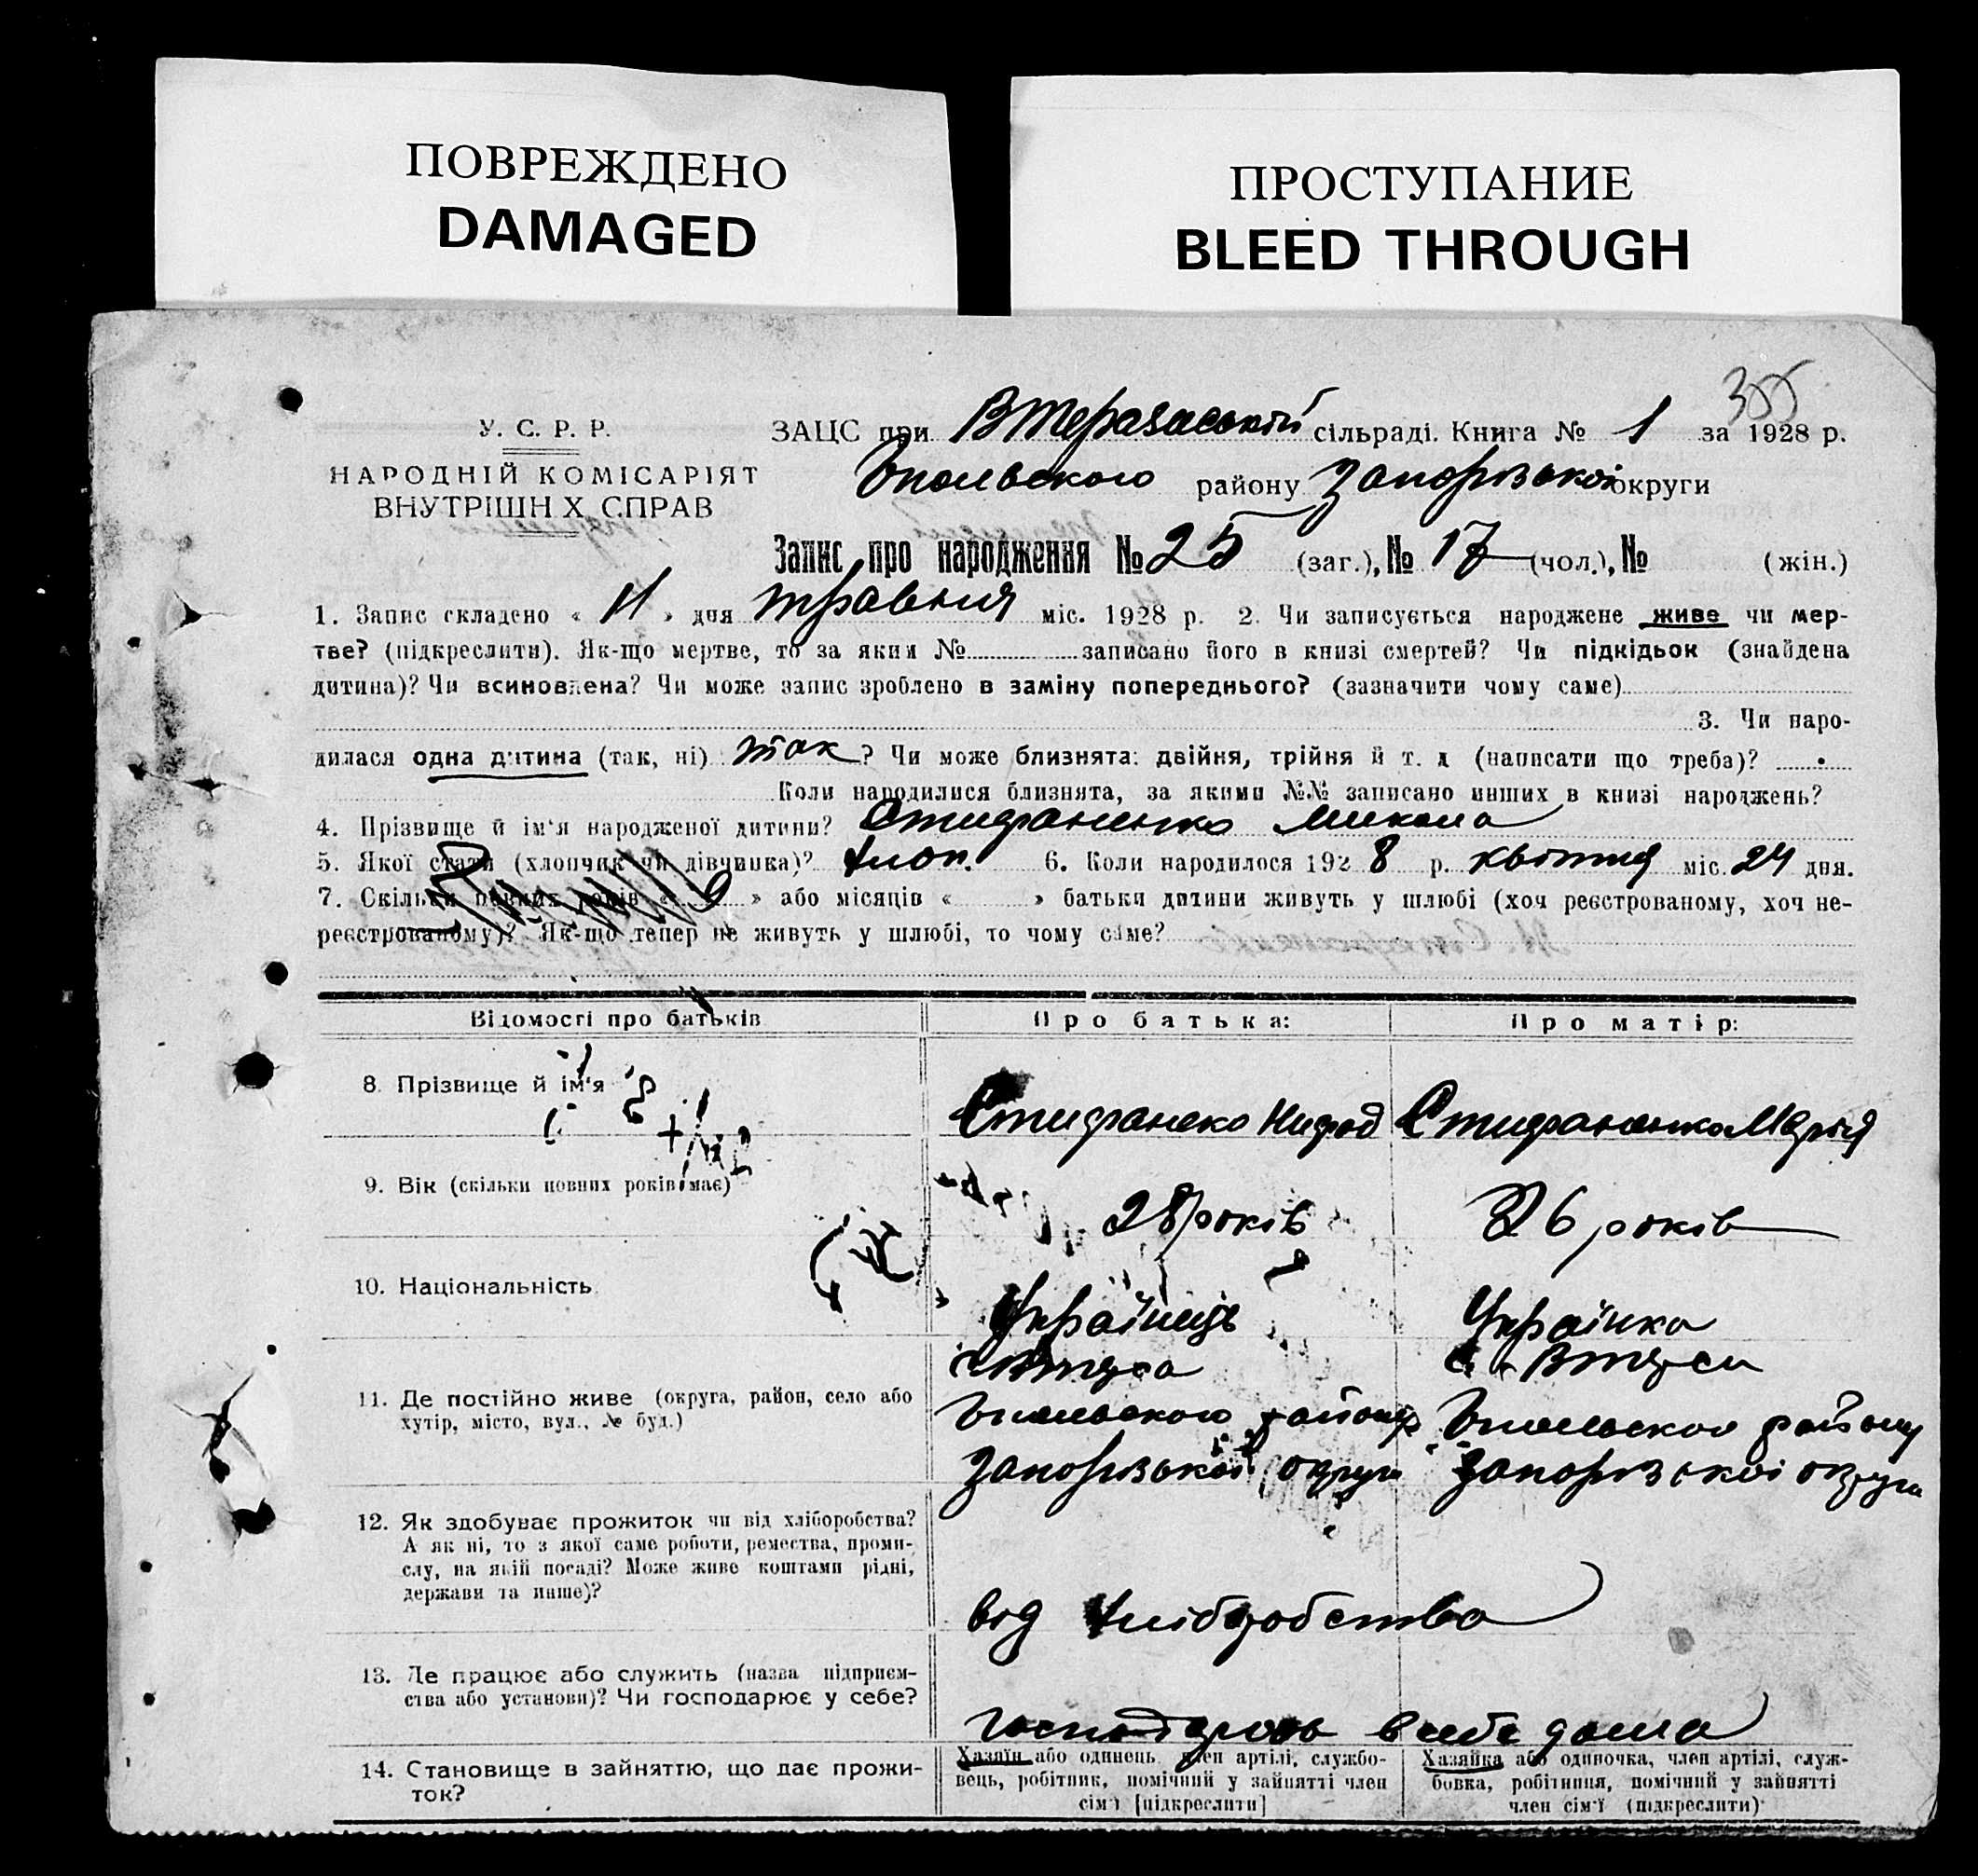 ПОВРЕЖДЕНО
DAMAGED
ПРОСТУПАНИЕ
BLEED THROUGH
355
У. С. Р. Р.
НАРОДНІЙ КОМІСАРІЯТ
ВНУТРІШН Х СПРАВ
ЗАЦС при сільраді. Книга № 1 за 1928 р.
району Запорізької округи
Запис про народження № 25 (заг.), № 17 (чол.), № (жін.)
1. Запис складено « 11 » дня травня міс. 1928 р. 2. Чи записується народжене живе чи мер-
тве? (підкреслити). Як-що мертве, то за яким № записано його в книзі смертей? Чи підкідьок (знайдена
дитина)? Чи всиновлена? Чи може запис зроблено в заміну попереднього? (зазначити чому саме)
3. Чи наро-
дилася одна дитина (так, ні) так ? Чи може близнята: двійня, трійня й т. д (написати що треба)?
Коли народилися близнята, за якими №№ записано инших в книзі народжень?
4. Прізвище й ім'я народженої дитини? Стифаненко Микола
5. Якої стати (хлопчик чи дівчинка)? хлоп. 6. Коли народилося 192 8 р. квітня міс. 24 дня.
7. Скільки повних років « 9 » або місяців « » батьки дитини живуть у шлюбі (хоч реєстрованому, хоч не-
реєстрованому)? Як-що тепер не живуть у шлюбі, то чому саме?
Відомості про батьків
Про батька:
Про матір:
8. Прізвище й ім'я
Стифанеко Нифод
Стифаненко Марія
9. Вік (скільки повних років має)
28 років
26 років
10. Національність
Українець
Українка
11. Де постійно живе (округа, район, село або
хутір, місто, вул., № буд.)
району
району
Запорізької округи
Запорізької округи
12. Як здобуває прожиток чи від хліборобства?
А як ні, то з якої саме роботи, ремества, проми-
слу, на якій посаді? Може живе коштами рідні,
держави та инше)?
від хліборобства
13. Де працює або служить (назва підприєм-
ства або установи)? Чи господарює у себе?
в себе дома
14. Становище в зайняттю, що дає прожи-
ток?
Хазяїн або одинець член артілі, службо-
вець, робітник, помічний у зайнятті член
сім'ї [підкреслити]
Хазяйка або одиночка, член артілі, служ-
бовка, робітниця, помічний у зайнятті
член сім'ї (підкреслити)